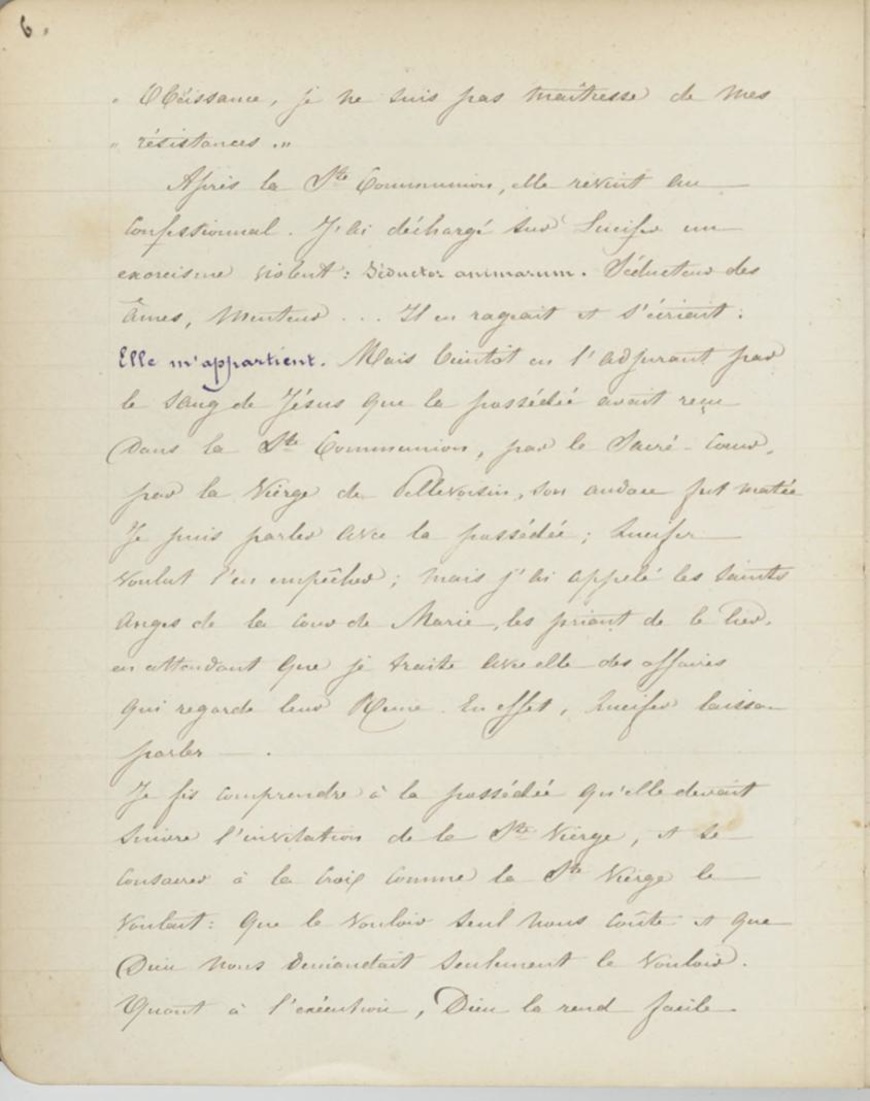 6.
" Obéissance, je ne suis pas maîtresse de mes
" résistances."
Après la Ste Communion, elle revint au
confessionnal. J'ai déchargé sur Lucifer un
exorcisme violent : Seductor animarum. Séducteur des
âmes, Menteur ... Il en rageait et s'écriait :
Elle m'appartient. Mais bientôt en l'adjurant par
le sang de Jésus que la possédée avait reçu
Dans la Ste Communion, par le Sacré-Coeur,
par la Vierge de Pellevoisin, son audace fut matée
Je puis parler avec la possédée ; Lucifer
voulut l'en empêcher ; mais j'ai appelé les saints
Anges de la cour de Marie, les priant de le lier,
en attendant que je traite avec elle des affaires
qui regarde leur Reine. En effet, Lucifer laissa
parler.
Je fis comprendre à la possédée qu'elle devait
suivre l'invitation de la Ste Vierge, et se
consacrer à la Croix comme la Ste Vierge le
voulait : que le vouloir seul nous coûte et que
Dieu nous demandait seulement le vouloir.
Quant à l'exécution, Dieu la rend facile.